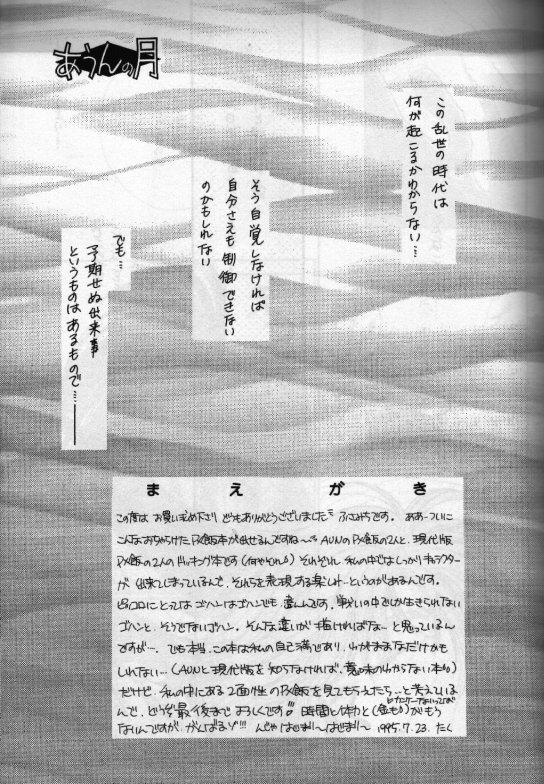 あうんの月
この乱世の時代は
何が起こるかわからない…
そう自覚しなければ
自分さえも制御できない
のかもしれない
でも…
予期せぬ出来事
というものはあるもので…――
まえがき
この度はお買い求め下さり どうもありがとうございました ふさみちです。 ああーついに
こんな P×飯本が出せるんですね〜 AUNのP×飯の2人と、現代版
P×飯の2人のドッキング本です(何やそれ) それぞれ 私の中ではしっかりキャラクター
が 出来てしまっているんで、それらを表現する楽しみ…というのがあるんです。
ピコロにとっては ゴハンはゴハンでも、違うんです。戦いの中でしか生きられない
ゴハンと、そうでないゴハン。そんな違いが 描ければな…と思っているん
ですが…。でも本当、この本は私の自己満であり、わがままなだけかも
しれない…(AUNと現代版を知らなければ、意味のわからない本)
だけど、私の中にある2面性のP×飯を見てもらえたら…と考えている
んで、どうぞ最後まで よろしくです!! 時間と体力と(金も)がもう
ないんですが、がんばるゾ!!! んじゃ はじまり〜はじまり〜 1995.7.23. たく